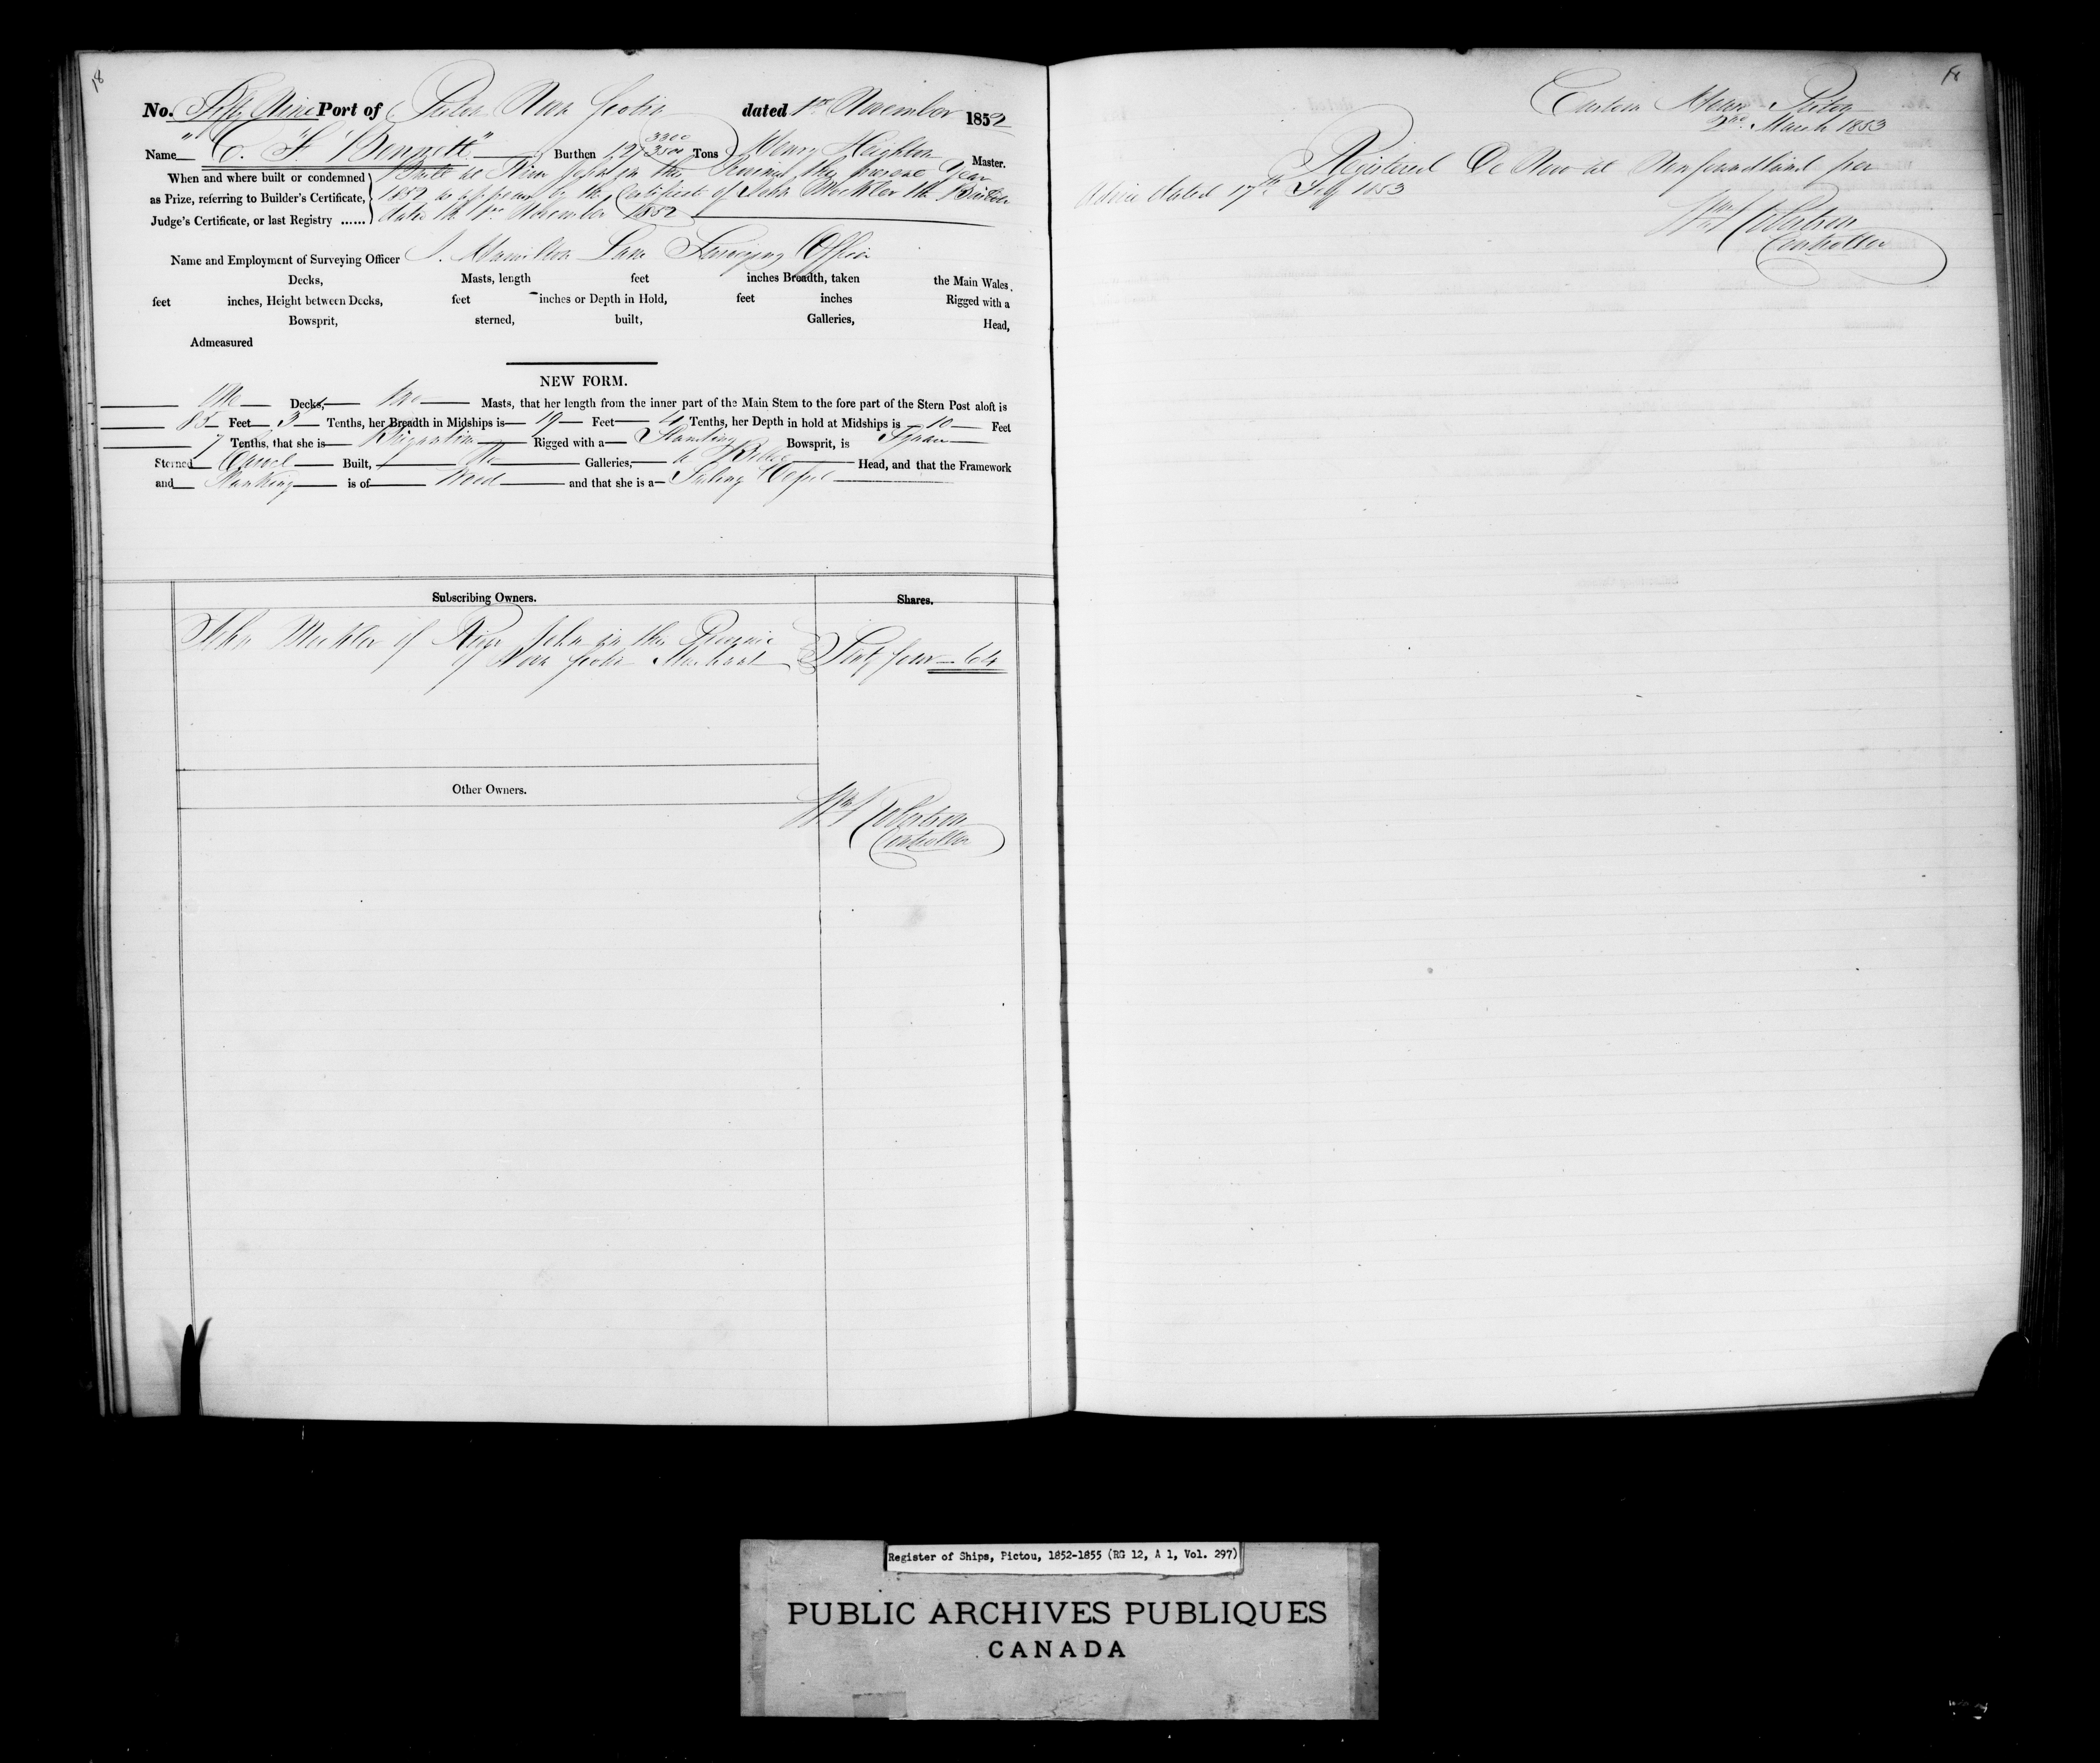 18
No. Fifty Nine Port of Pictou Nova Scotia dated 1st November 1852
Name "C. F. Bennett" Burthen 127 3300/3500 Tons Henry Heighton Master.
When and where built or condemned as Prize, referring to Builder's Certificate, Judge's Certificate, or last Registry ......
Built at River John in this Province this present Year
1852 as appears by the Certificate of John Mockler the Builder
dated the 1st November 1852
Name and Employment of Surveying Officer J. Hamilton Lane Surveying Officer
Decks, Masts, length feet inches Breadth, taken the Main Wales,
feet inches, Height between Decks, feet inches or Depth in Hold, feet inches Rigged with a
Bowsprit, sterned, built, Galleries, Head,
Admeasured
NEW FORM.
One Decks, two Masts, that her length from the inner part of the Main Stem to the fore part of the Stern Post aloft is
85 Feet 3 Tenths, her Breadth in Midships is 19 Feet 4 Tenths, her Depth in hold at Midships is 10 Feet
7 Tenths, that she is Brigantine Rigged with a Standing Bowsprit, is Square
Sterned Carvel Built, No Galleries, a Billet Head, and that the Framework
and Planking is of Wood and that she is a Sailing Vessel
Subscribing Owners. Shares.
John Mockler of River John in the Province
of Nova Scotia Merchant Sixty four 64
Other Owners.
Robertson
Controller
Custom House Pictou
2nd March 1853
Registered De Novo at Newfoundland per
Advice dated 17th Feby 1853
Robertson
Controller
Register of Ships, Pictou, 1852-1855 (RG 12, A 1, Vol. 297)
PUBLIC ARCHIVES PUBLIQUES
CANADA